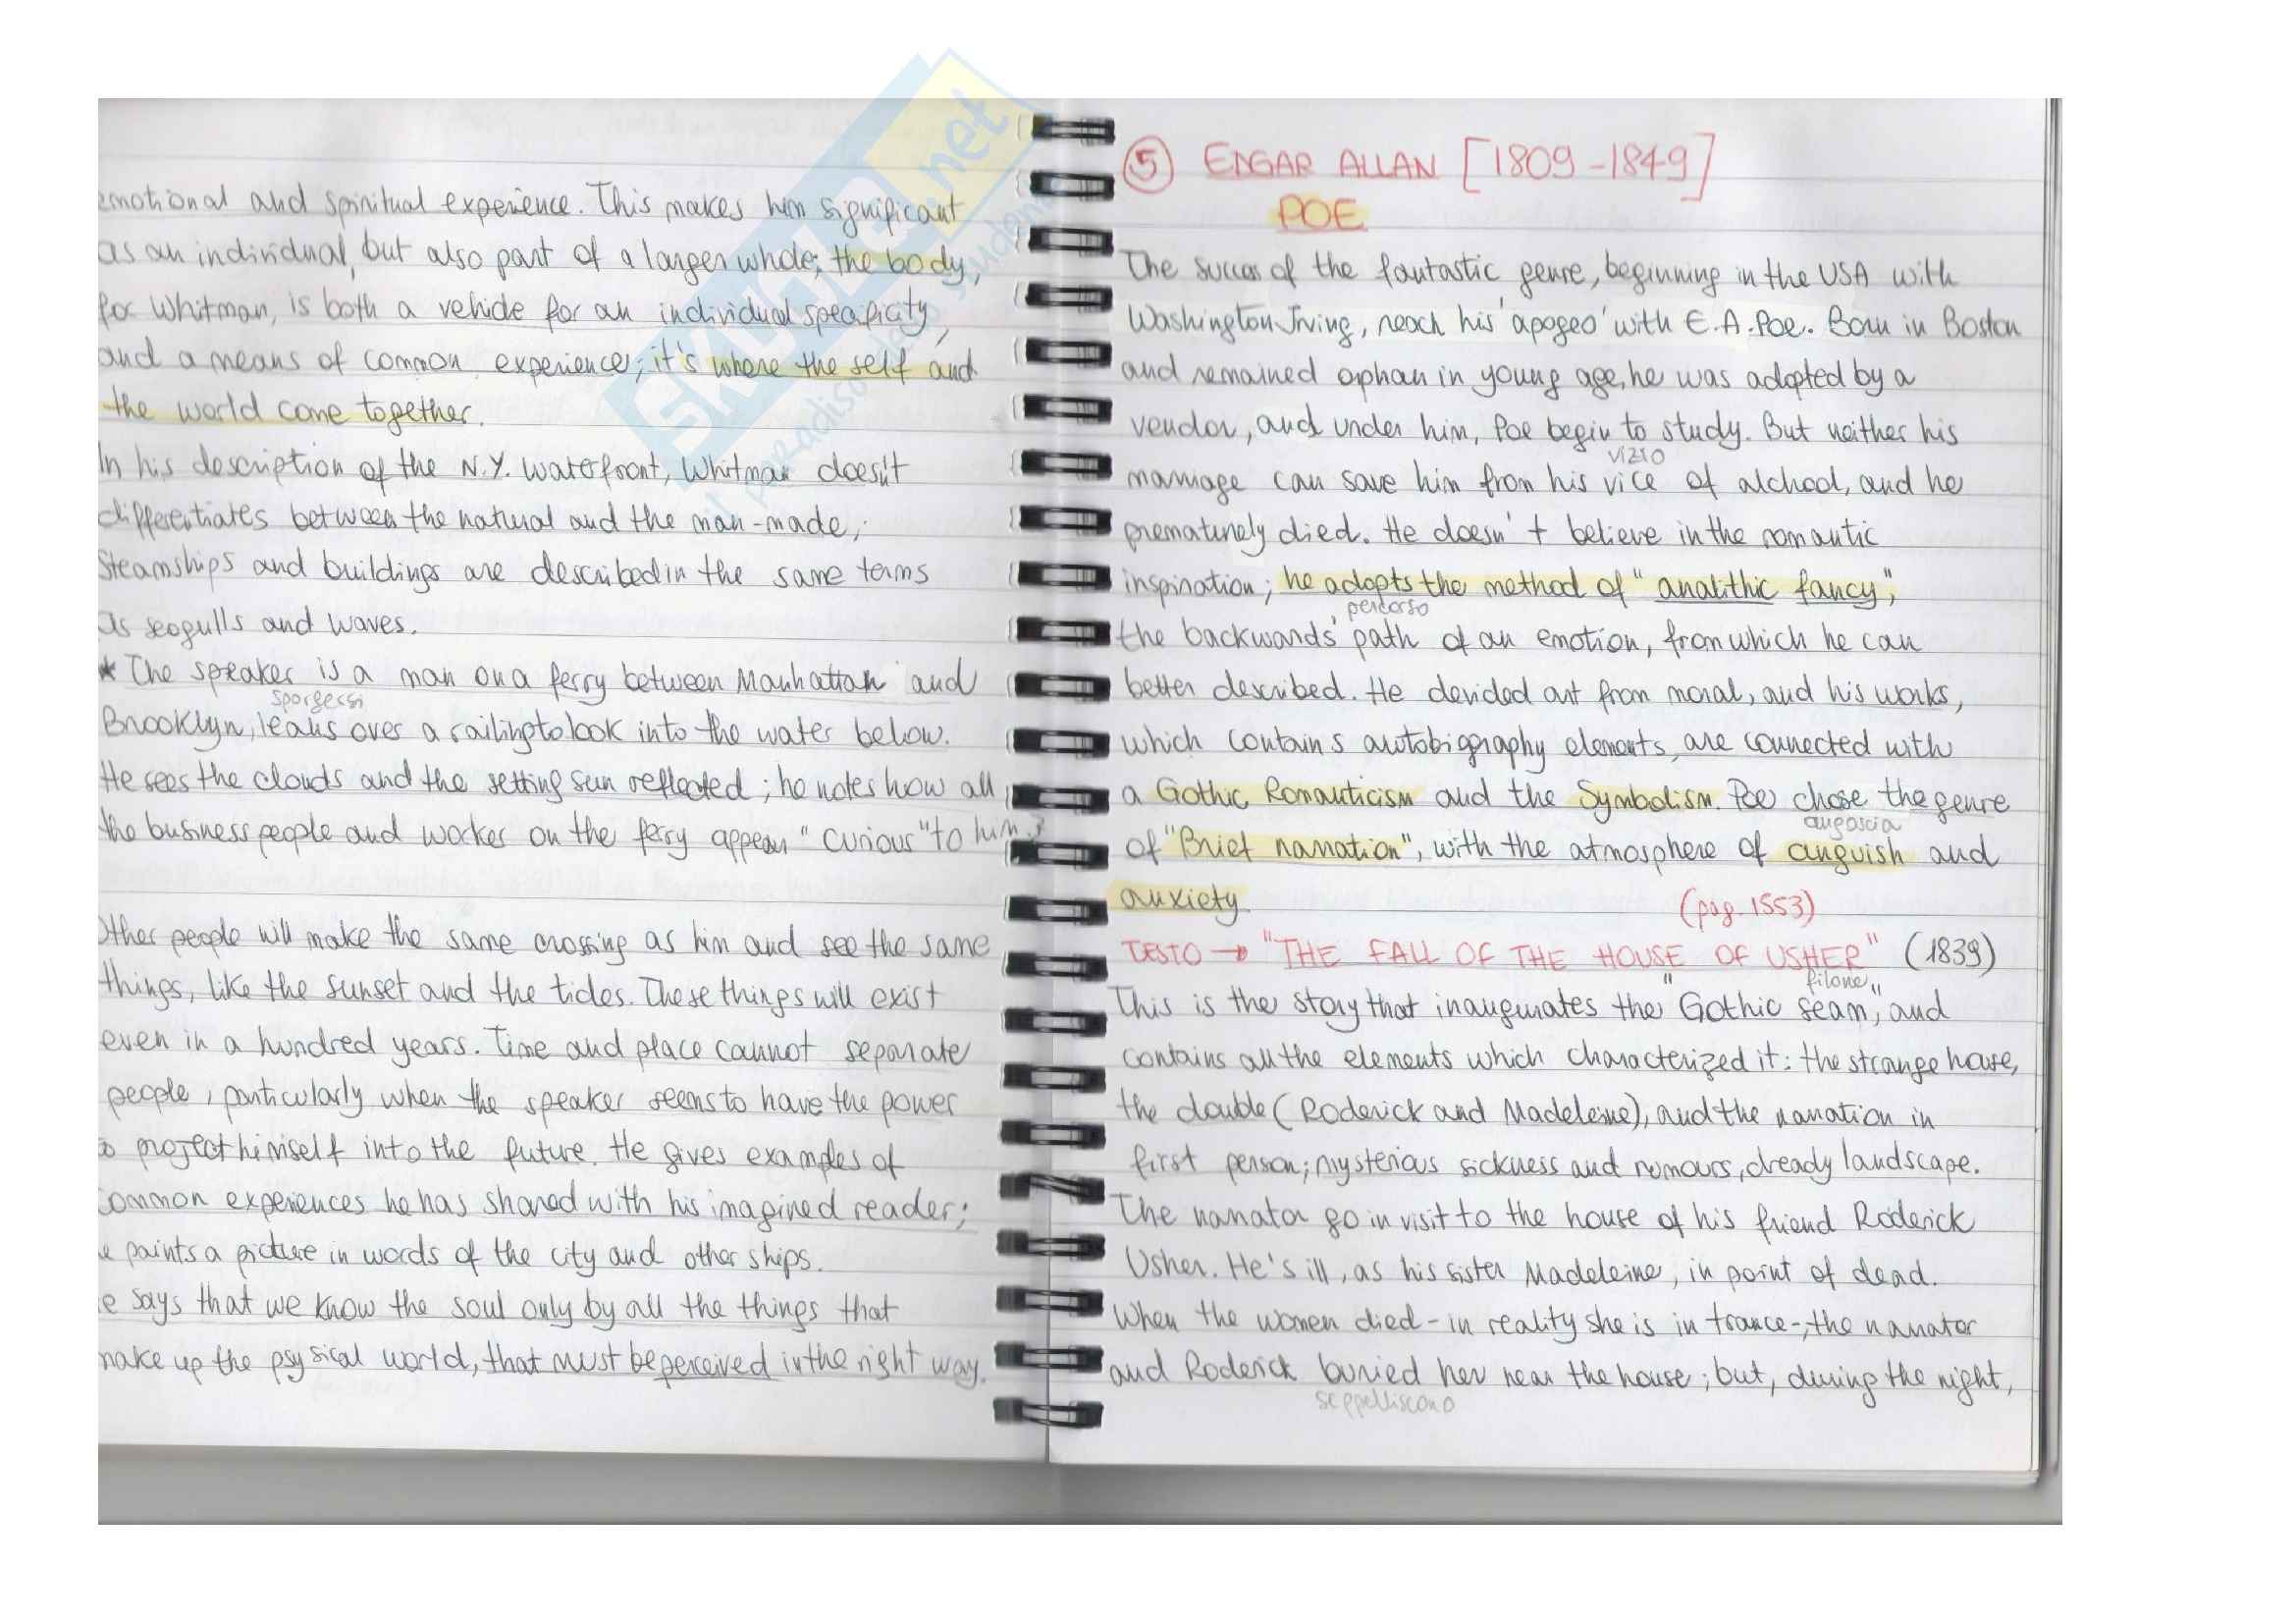 emotional and spiritual experience. This makes him significant
as an individual, but also part of a larger whole; the body,
for Whitman, is both a vehicle for an individual specificity,
and a means of common experience; it's where the self and
the world come together.
In his description of the N.Y. waterfront, Whitman doesn't
differentiates between the natural and the man-made;
Steamships and buildings are described in the same terms
as seagulls and waves.
* The speaker is a man on a ferry between Manhattan and
sporgersi
Brooklyn, leans over a railing to look into the water below.
He sees the clouds and the setting sun reflected; he notes how all
the business people and worker on the ferry appear "curious" to him.
Other people will make the same crossing as him and see the same
things, like the sunset and the tides. These things will exist
even in a hundred years. Time and place cannot separate
people, particularly when the speaker seems to have the power
to project himself into the future. He gives examples of
common experiences he has shared with his imagined reader;
e paints a picture in words of the city and other ships.
e says that we know the soul only by all the things that
make up the psysical world, that must be perceived in the right way.
5 EDGAR ALLAN [1809-1849]
POE
The succes of the fantastic genre, beginning in the USA with
Washington Irving, reach his 'apogeo' with E.A. Poe. Born in Boston
and remained orphan in young age, he was adopted by a
vendor, and under him, Poe begin to study. But neither his
vizio
marriage can save him from his vice of alchool, and he
prematurely died. He doesn't believe in the romantic
inspiration; he adopts the method of "analithic fancy",
percorso
the backwards' path of an emotion, from which he can
better described. He devided art from moral, and his works,
which contains autobigraphy elements, are connected with
a Gothic Romanticism and the Symbolism. Poe chose the genre
angoscia
of "Brief narration", with the atmosphere of anguish and
anxiety
(pag. 1553)
TESTO → "THE FALL OF THE HOUSE OF USHER" (1839)
filone
This is the story that inaugurates the "Gothic seam", and
contains all the elements which characterized it: the strange house,
the double (Roderick and Madeleine), and the narration in
first person; mysterious sickness and rumours, dready landscape.
The narrator go in visit to the house of his friend Roderick
Usher. He's ill, as his sister Madeleine, in point of dead.
When the women died - in reality she is in trance -, the narrator
and Roderick buried her near the house; but, during the night,
seppelliscono
SKUOLA.net